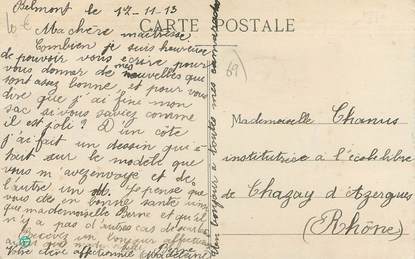 Belmont le 17-11-13
CARTE POSTALE
Ma chère maîtresse
Combien je suis heureuse
de pouvoir vous écrire pour
vous donner de mes nouvelles que
sont assez bonne et pour vous
dire que j'ai fini mon
sac si vous saviez comme
il est joli ? D'un côté
j'ai fait un dessin qui
était sur le modèle que
vous m'avez envoyé et de
l'autre un M. Je pense que
vous êtes en bonne santé ainsi
que mademoiselle Berne et qu'il
n'y a pas d'autres cas de
Recevez un bonjour affectueux
Votre élève affectionnée
Un bonjour à toutes mes camarades
69
Mademoiselle Chanus
institutrice à l'école libre
de Chazay d'Azergues
(Rhône)